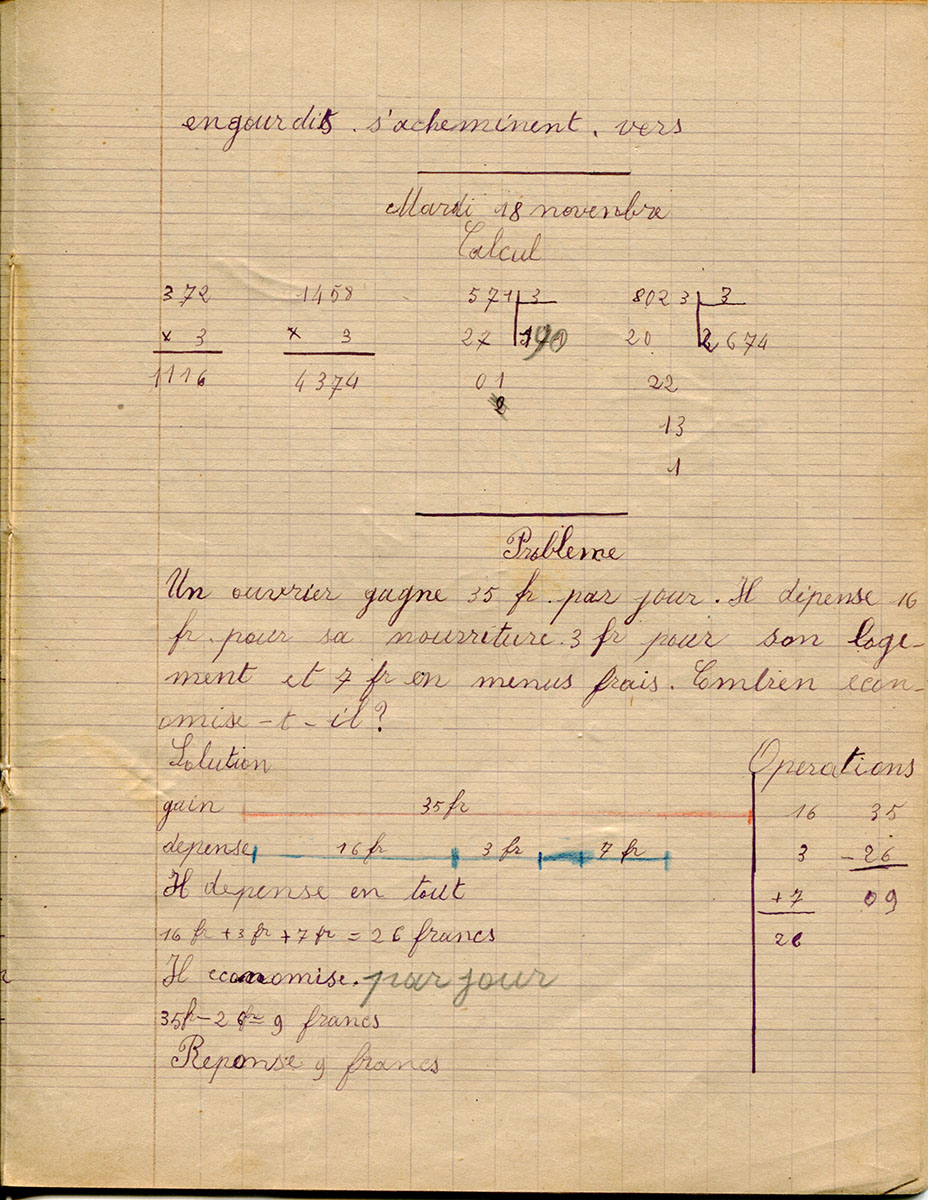 engourdis s'acheminent. vers
Mardi 18 novembre
Calcul
372 1458 571 3 8023 3
x 3 x 3 27 190 20 2674
1116 4374 01 22
13
1
Probleme
Un ouvrier gagne 35 fr. par jour. Il dépense 16
fr. pour sa nourriture. 3 fr pour son loge-
ment et 7 fr en menus frais. Combien écon-
omise-t-il?
Solution Operations
gain 35 fr 16 35
depense 16 fr 3 fr 7 fr 3 -26
Il depense en tout +7 09
16 fr + 3 fr + 7 fr = 26 francs 26
Il economise. par jour
35 fr - 26 = 9 francs
Reponse 9 francs